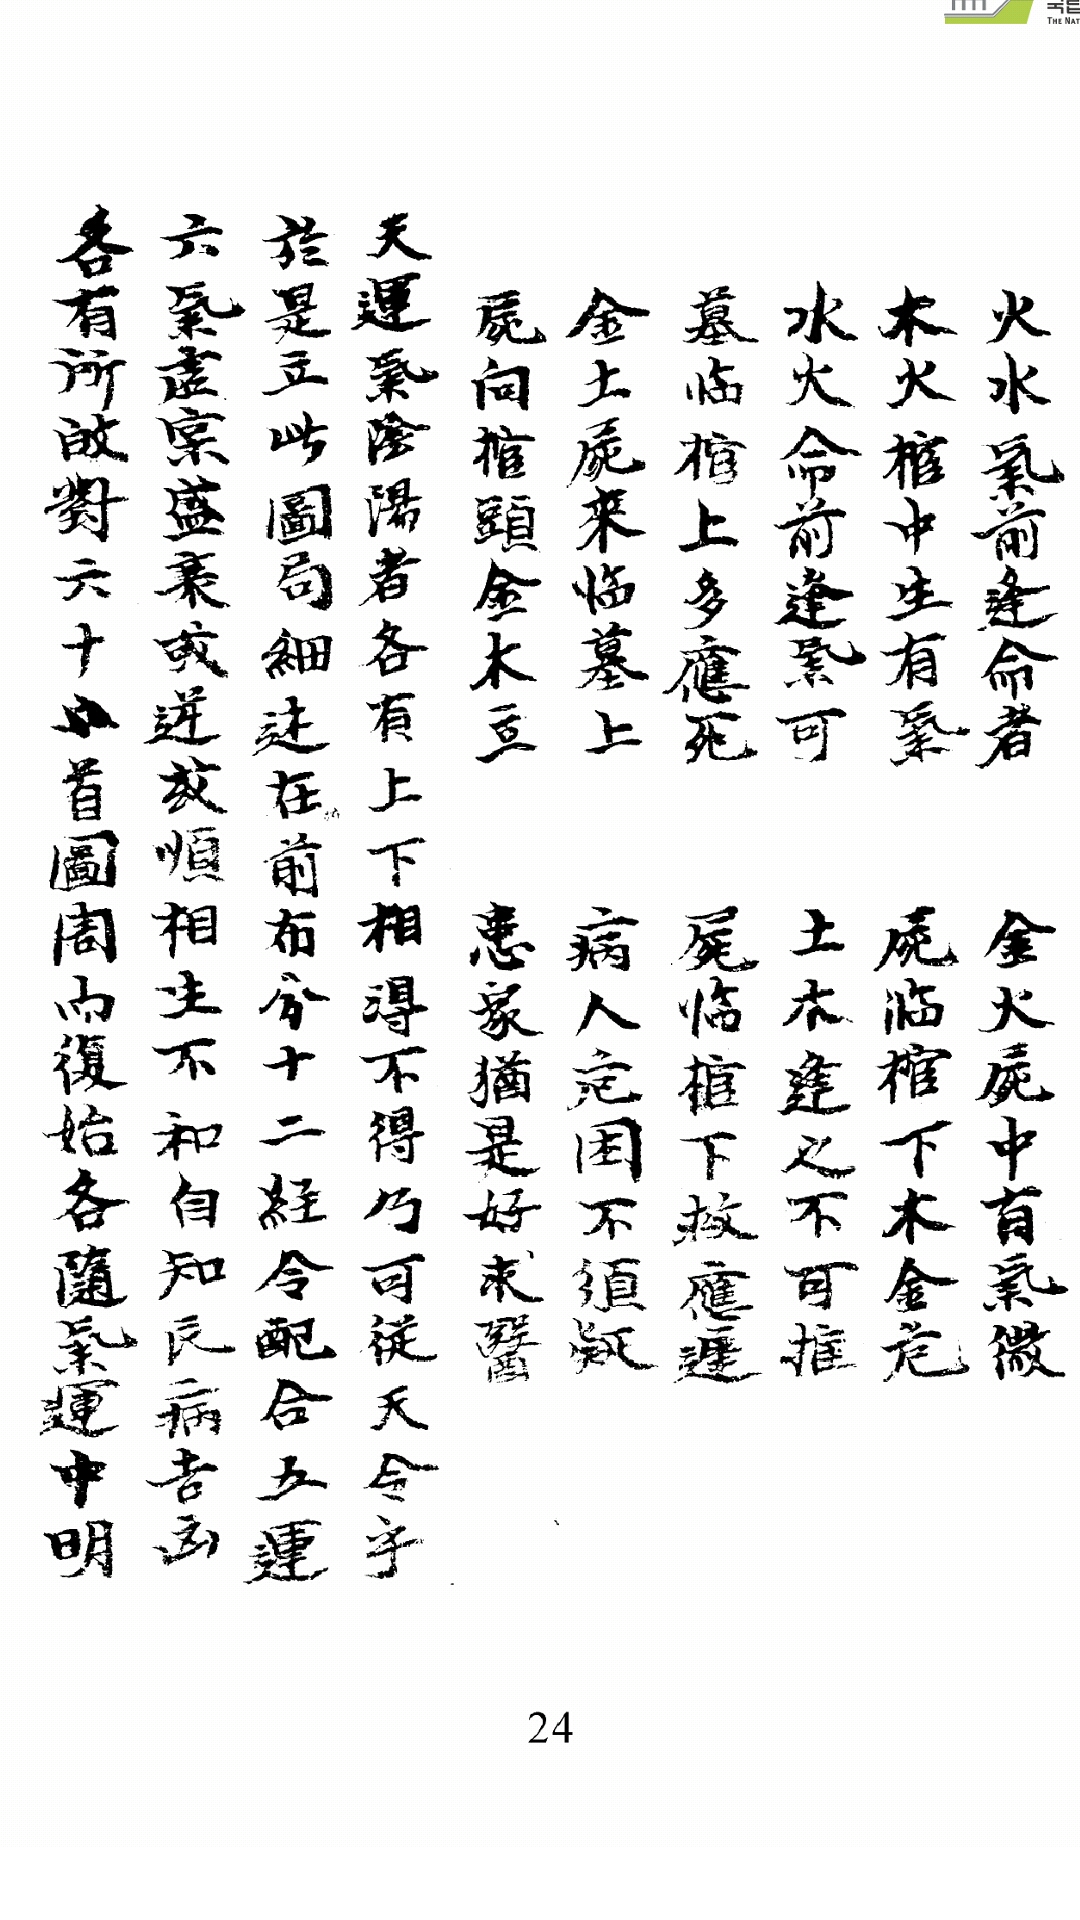 火水氣前逢命者　金火屍中有氣微
木火棺中生有氣　屍临棺下木金危
水火命前逢氣可　土木逢之不可推
墓临棺上多應死　屍临棺下救應遲
金土屍来临墓上　病人危困不須疑
屍向棺頭金木立　患家猶是好求醫
天運氣陰陽者各有上下相得不得乃可從天令乎
於是立此圖局細述在前布分十二経令配合五運
六氣虛実盛衰或逆或順相生不和自知民病吉凶
各有所政對六十首圖周而復始各隨氣運中明
24
THE NAT